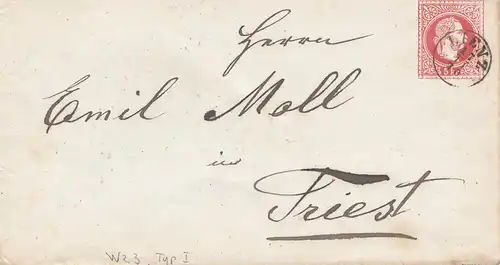 Herrn
Emil Moll
in
Triest
Wz 3 Typ I